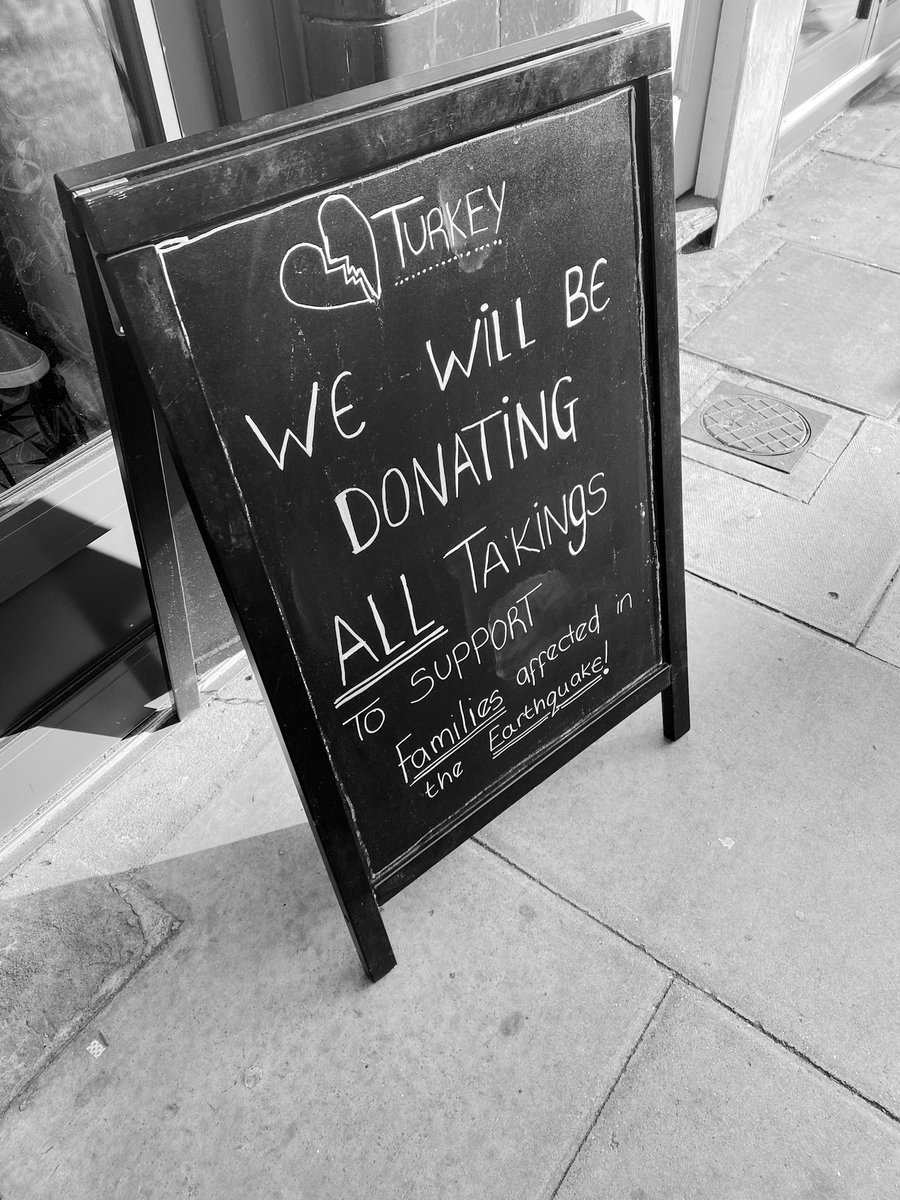 TURKEY
WE WILL BE
DONATING
ALL TAKINGS
TO SUPPORT
Families affected in
the Earthquake!